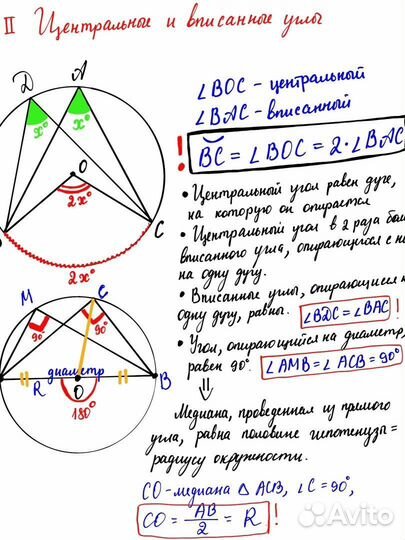 II Центральные и вписанные углы
D A
x° x°
O
2x°
C
2x°
∠BOC - центральный
∠BAC - вписанный
! BC = ∠BOC = 2·∠BAC
• Центральный угол равен дуге,
на которую он опирается
• Центральный угол в 2 раза бол
вписанного угла, опирающегося с н
на одну дугу.
• Вписанные углы, опирающиеся н
одну дугу, равны. ∠BDC = ∠BAC !
• Угол, опирающийся на диаметр,
равен 90°. ∠AMB = ∠ACB = 90°
⇓
M C
90° 90°
диаметр
R O B
180°
Медиана, проведенная из прямого
угла, равна половине гипотенузы =
радиусу окружности.
CO - медиана △ ACB, ∠C = 90°,
CO = AB/2 = R !
Avito